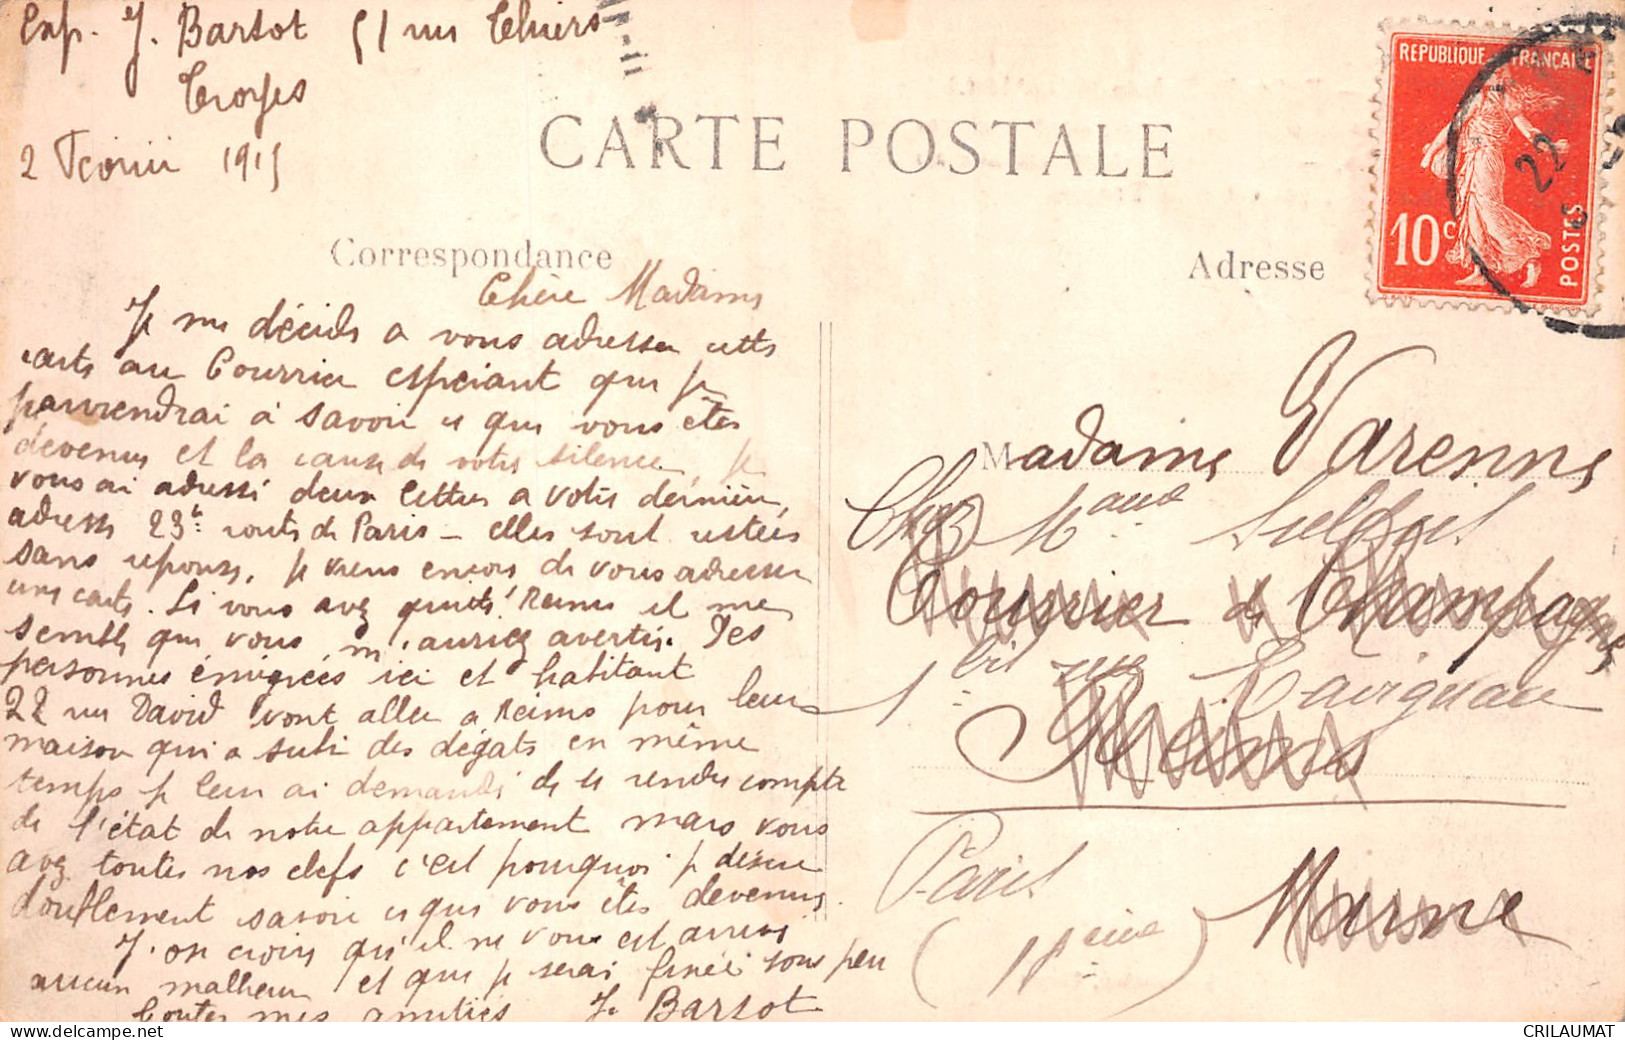 Exp. J. Barsot 51 rue Thiers
Troyes
2 Février 1915
CARTE POSTALE
RÉPUBLIQUE FRANÇAISE
10c
POSTES
22
Correspondance
Adresse
Chère Madame
Je me décide a vous adresser cette
carte au Courrier espérant que je
parviendrai à savoir ce que vous êtes
devenue et la cause de votre silence, je
vous ai adressé deux lettres a votre dernière
adresse 23t route de Paris – elles sont restées
sans réponse, je viens encore de vous adresser
une carte. Si vous avez quitté Reims il me
semble que vous m'auriez avertie. Des
personnes émigrées ici et habitant
22 rue David vont aller a Reims pour leur
maison qui a subi des dégats en même
temps je leur ai demandé de se rendre compte
de l'état de notre appartement mais vous
avez toutes nos clefs c'est pourquoi je désire
doublement savoir ce que vous êtes devenue.
J'ose croire qu'il ne vous est arrivé
aucun malheur et que je serai fixée sous peu
Toutes mes amitiés J. Barsot
Madame Varenne
Chez Maud
Courrier de la Champagne
1 bis rue Lavignau
Reims
Paris
Marne
(18eme)
CRILAUMAT